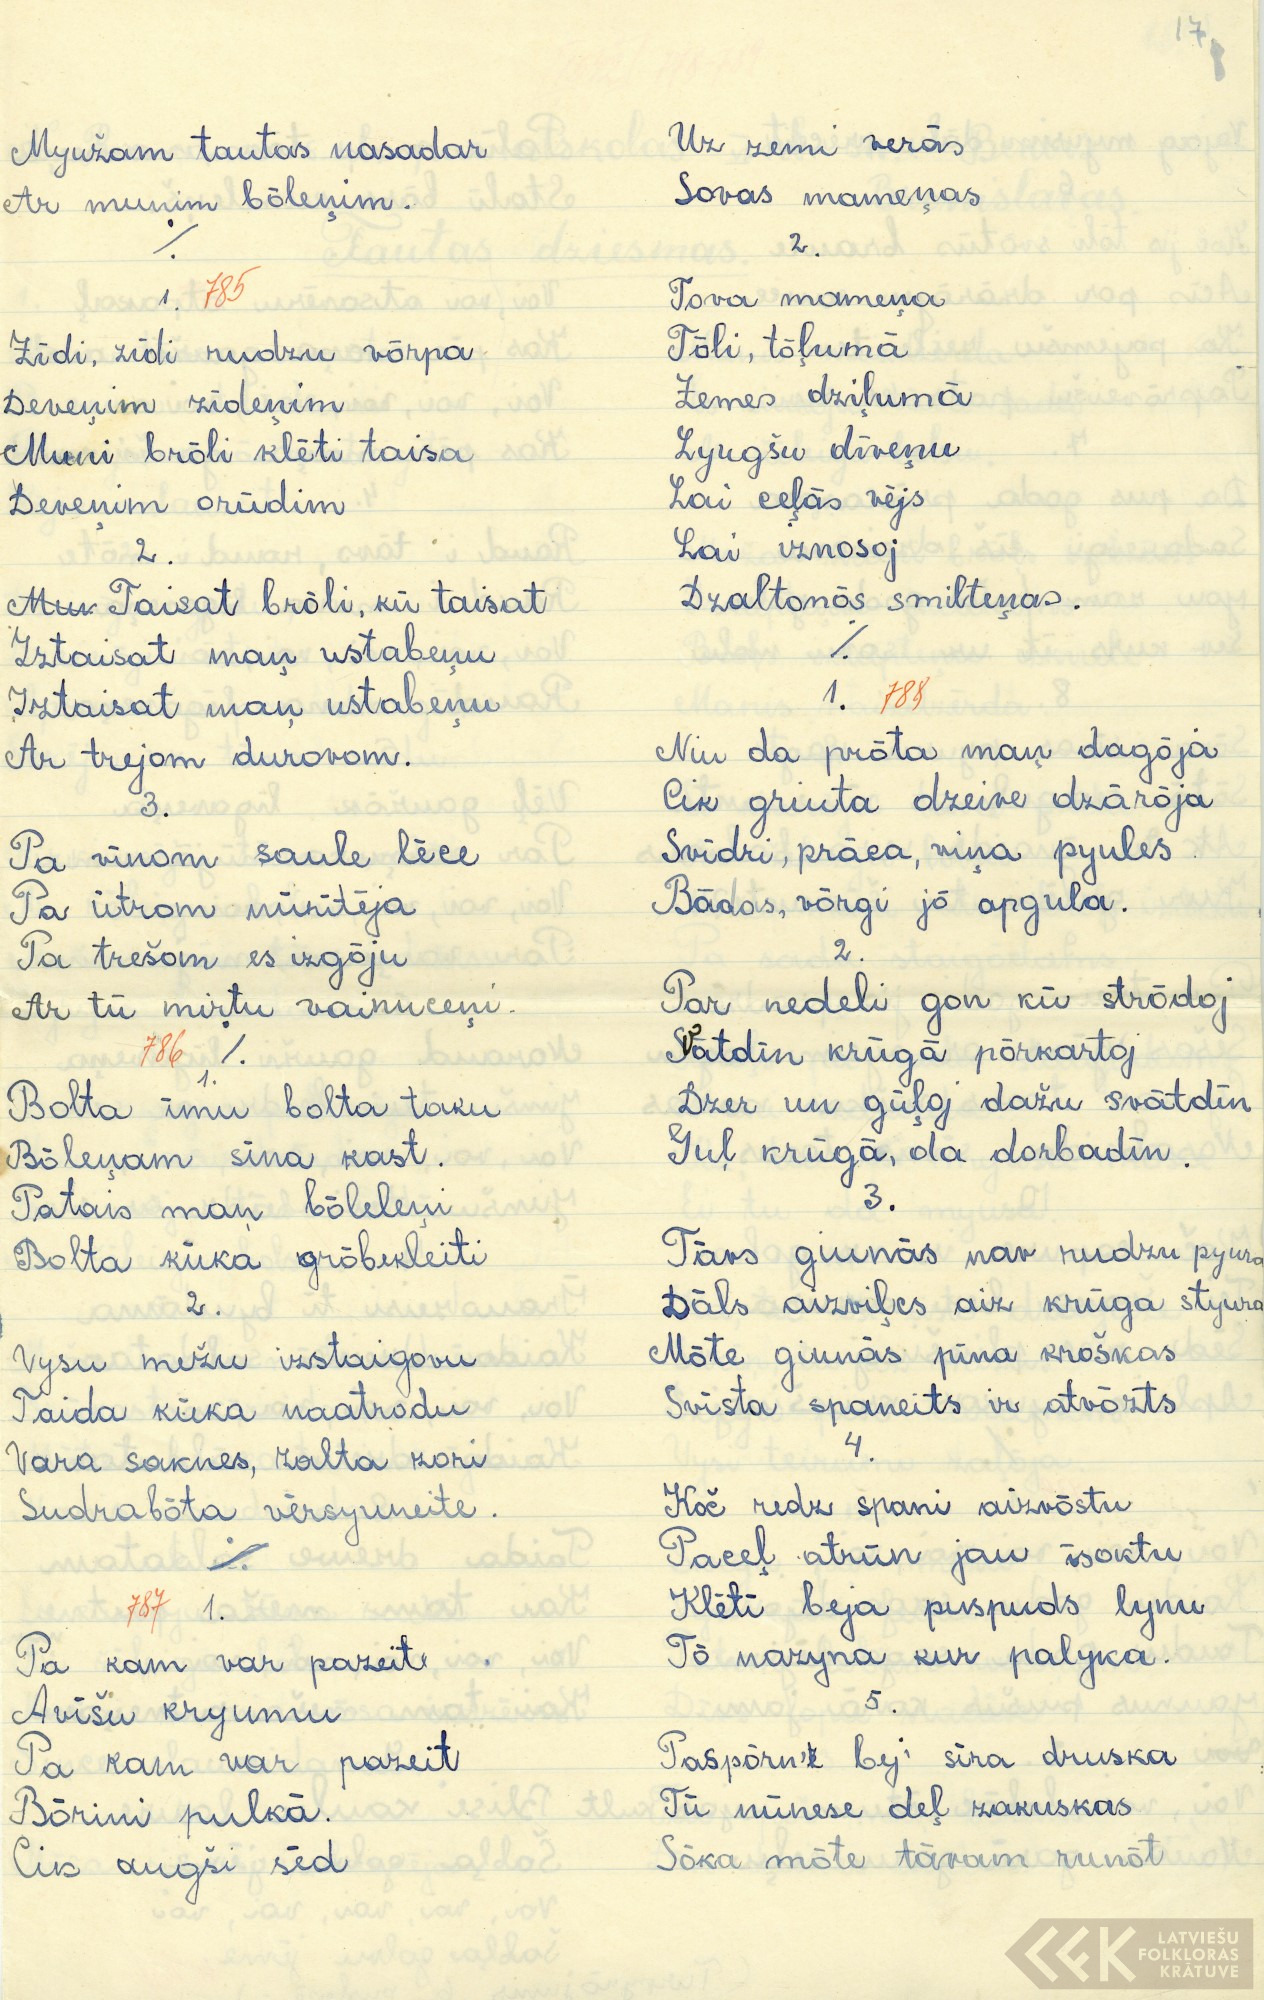 17
Myužam tautas nasadar
Ar munim bōleņim.
./.
1. 785
Zīdi, zīdi rudzu vōrpa
Deveņim zīdeņim
Muni brōli klēti taisa
Deveņim orūdim
2.
Mun Taisat brōli, kū taisat
Iztaisat maņ ustabeņu
Iztaisat maņ ustabeņu
Ar trejom durovom.
3.
Pa vīnom saule lēce
Pa ūtrom nūsītēja
Pa trešom es izgōju
Ar tū mirtu vainuceņi.
786 ./.
1.
Bolta īmu bolta taku
Bōleņam sīna kast.
Patais maņ bōleleņi
Bolta kūka grōbekleiti
2.
Vysu mežu izstaigovu
Taida kūka naatrodu
Vara saknes, zalta zori
Sudrabōta vērsyuneite.
./.
787 1.
Pa kam var pazeit
Avīšu kryumu
Pa kam var pazeit
Bōrini pulkā.
Cik augši sēd
Uz zemi verās
Sovas mameņas
2.
Tova mameņa
Tōli, tōļumā
Zemes dziļumā
Lyugšu dīveņu
Lai ceļās vējs
Lai iznosoj
Dzaltonōs smilteņas.
./.
1. 788
Niu da prōta maņ dagōja
Cik griuta dzeive dzārōja
Svīdri, prāca, viņa pyules
Bādas, vōrgi jō apgula.
2.
Par nedeli gon kū strōdoj
Svātdīn krūgā pōrkartoj
Dzer un gūļoj dažu svātdīn
Guļ krūgā, da dorbadīn.
3.
Tāvs giunās nav rudzu pyura
Dāls aizviļcs aiz krūga styura
Mōte giunās pīna kroškas
Svīsta spaneits ir atvōzts
4.
Koč redz spani aizvōstu
Paceļ atrūn jau īsoktu
Klētī beja puspuds lynu
Tō nazyna kur palyka.
5.
Paspōrn'ē bej' sīra druska
Tū nūnese deļ zakuskas
Sōka mōte tāvam runōt
LATVIEŠU
FOLKLORAS
KRĀTUVE